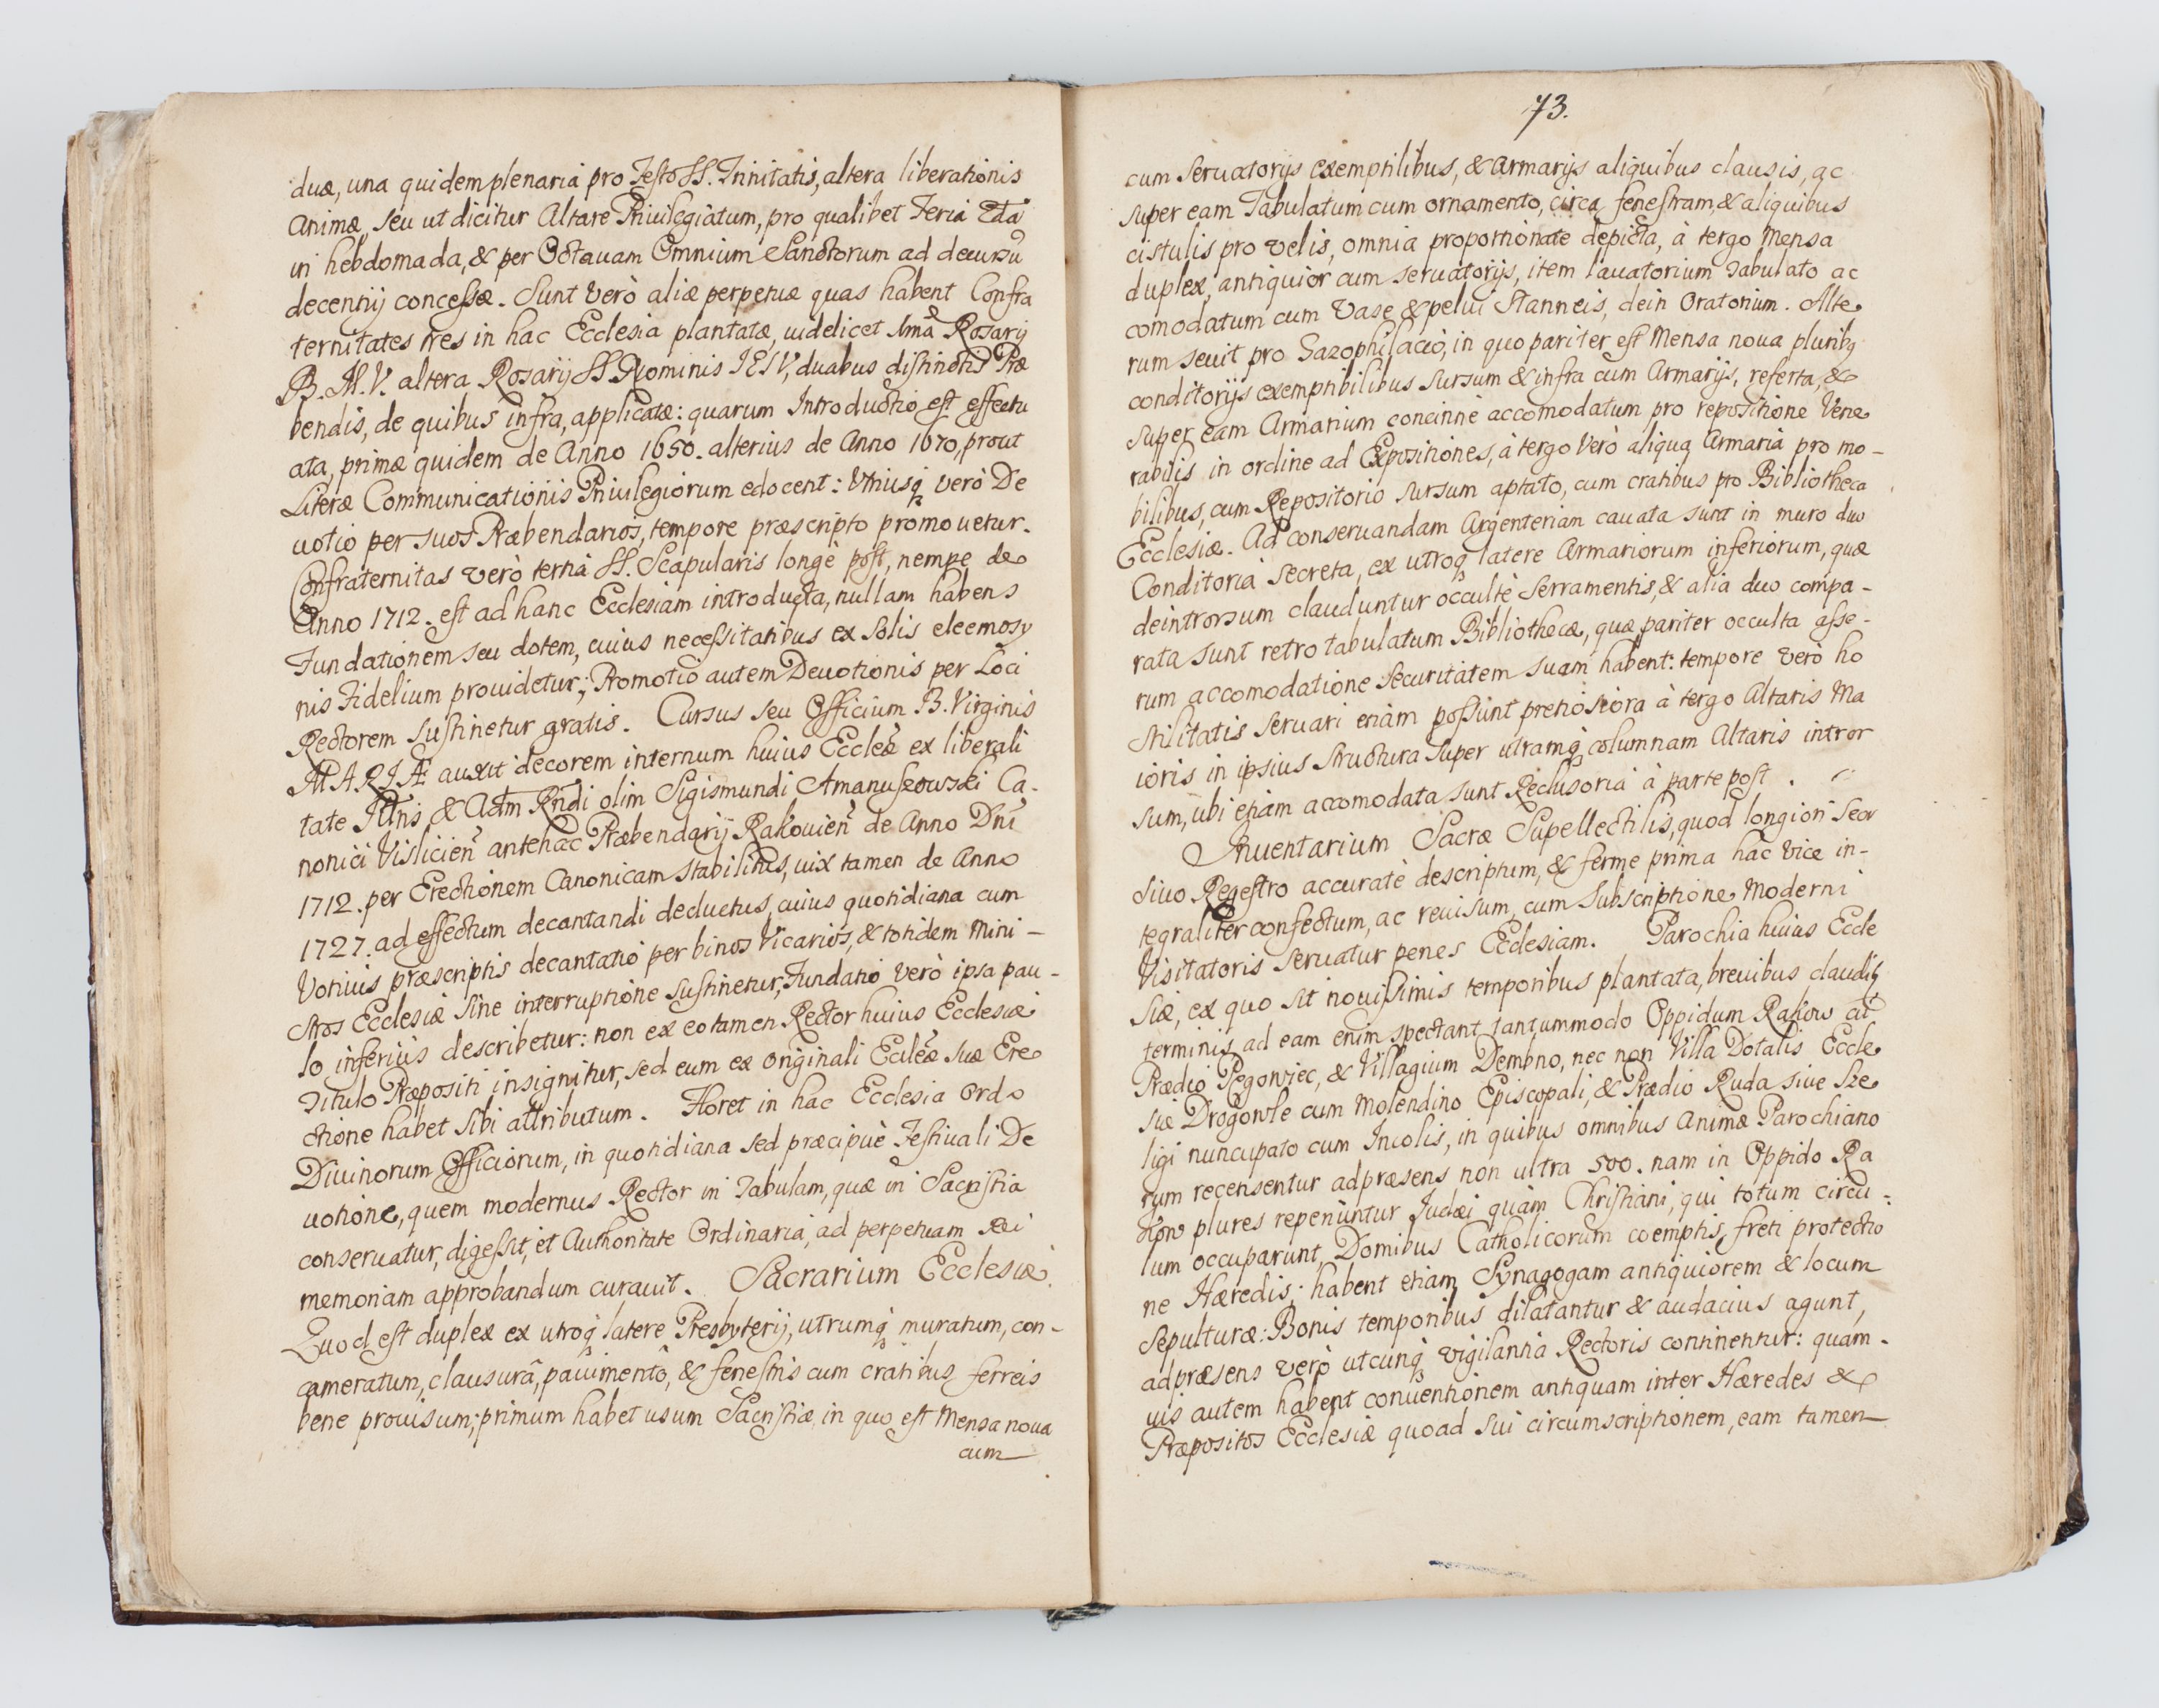 duæ, una quidem plenaria pro Festo SS. Trinitatis, altera liberationis
Animæ, seu ut dicitur Altare Priuilegiatum, pro qualibet Feria 2da
in hebdomada, & per Octauam Omnium Sanctorum ad decursū
decennij concessæ. Sunt verò aliæ perpetuæ quas habent Confra
ternitates tres in hac Ecclesia plantatæ, uidelicet 1ma Rosarij
B. M. V. altera Rosarij SS. Nominis IESV, duabus distinctis Præ
bendis, de quibus infra, applicatæ: quarum Introductio est effectu
ata, primæ quidem de Anno 1650. alterius de Anno 1670, prout
Literæ Communicationis Priuilegiorum edocent: Vtriusq verò De
uotio per suos Præbendarios, tempore præscripto promouetur.
Confraternitas verò tertia SS. Scapularis longè post, nempe de
Anno 1712. est ad hanc Ecclesiam introducta, nullam habens
Fundationem seu dotem, cuius necessitatibus ex solis eleemosy
nis Fidelium prouidetur; Promotio autem Deuotionis per Loci
Rectorem sustinetur gratis. Cursus seu Officium B. Virginis
MARIÆ auxit decorem internum huius Eccleæ ex liberali
tate Illris & Adm Rndi olim Sigismundi Amanuszowski Ca-
nonici Vislicien antehac Præbendarij Rakouien de Anno Dni
1712. per Erectionem Canonicam stabilitus, uix tamen de Anno
1727. ad effectum decantandi deductus, cuius quotidiana cum
Votiuis præscriptis decantatio per binos Vicarios, & totidem Mini-
stros Ecclesiæ sine interruptione sustinetur, Fundatio verò ipsa pau-
lo inferius describetur: non ex eo tamen Rector huius Ecclesiæ
Titulo Præpositi insignitur, sed eum ex originali Eccleæ suæ Ere
ctione habet sibi attributum. Floret in hac Ecclesia Ordo
Diuinorum Officiorum, in quotidiana sed præcipuè Festiuali De
uotione, quem modernus Rector in Tabulam, quæ in Sacristia
conseruatur, digessit, et Authoritate Ordinaria, ad perpetuam Rei
memoriam approbandum curauit. Sacrarium Ecclesiæ.
Quod est duplex ex utroq latere Presbyterij, utrumq muratum, con-
cameratum, clausurâ, pauimento, & fenestris cum cratibus ferreis
bene prouisum; primum habet usum Sacristiæ, in quo est Mensa noua
cum
73.
cum seruatorijs exemptilibus, & armarijs aliquibus clausis, ac
super eam Tabulatum cum ornamento, circa fenestram, & aliquibus
cistulis pro velis, omnia proportionate depicta, à tergo Mensa
duplex, antiquior cum seruatorijs, item lauatorium Tabulato ac
comodatum cum Vase & pelui stanneis, dein Oratorium. Alte
rum seuit pro Gazophilacio, in quo pariter est Mensa noua pluribq
conditorijs exemptibilibus sursum & infra cum Armarijs, referta, &
super eam Armarium concinnè accomodatum pro repositione Vene
rabilis in ordine ad Expositiones, à tergo verò aliqua Armaria pro mo-
bilibus, cum Repositorio sursum aptato, cum cratibus pro Bibliotheca
Ecclesiæ. Ad conseruandam Argenteriam cauata sunt in muro duo
Conditoria secreta, ex utroq latere Armariorum inferiorum, quæ
deintrorsum clauduntur occultè serramentis, & alia duo compa-
rata sunt retro tabulatum Bibliothecæ, quæ pariter occulta asse-
rum accomodatione securitatem suam habent: tempore verò ho
stilitatis seruari etiam possunt pretiosiora à tergo Altaris Ma
ioris in ipsius structura super utramq columnam Altaris intror
sum, ubi etiam accomodata sunt Reclusoria à parte post.
Inuentarium Sacræ Supellectilis, quod longiori seor
siuo Regestro accuratè descriptum, & ferme prima hac vice in-
tegraliter confectum, ac reuisum, cum subscriptione Moderni
Visitatoris seruatur penes Ecclesiam. Parochia huius Eccle
siæ, ex quo sit nouissimis temporibus plantata, breuibus clauditq
terminis, ad eam enim spectant tantummodo Oppidum Rakow cū
Prædio Pegowiec, & Villagium Dembno, nec non Villa Dotalis Eccle
siæ Drogowle cum Molendino Episcopali, & Prædio Ruda siue Sze
ligi nuncupato cum Incolis, in quibus omnibus Animæ Parochiano
rum recensentur ad præsens non ultra 500. nam in Oppido Ra
kow plures reperiuntur Judæi quàm Christiani, qui totum circu-
lum occuparunt, Domibus Catholicorum coemptis, freti protectio
ne Hæredis; habent etiam Synagogam antiquiorem & locum
Sepulturæ: Bonis temporibus dilatantur & audacius agunt,
ad præsens verò utcunq vigilantia Rectoris continentur: quam-
uis autem habent conuentionem antiquam inter Hæredes &
Præpositos Ecclesiæ quoad sui circumscriptionem, eam tamen